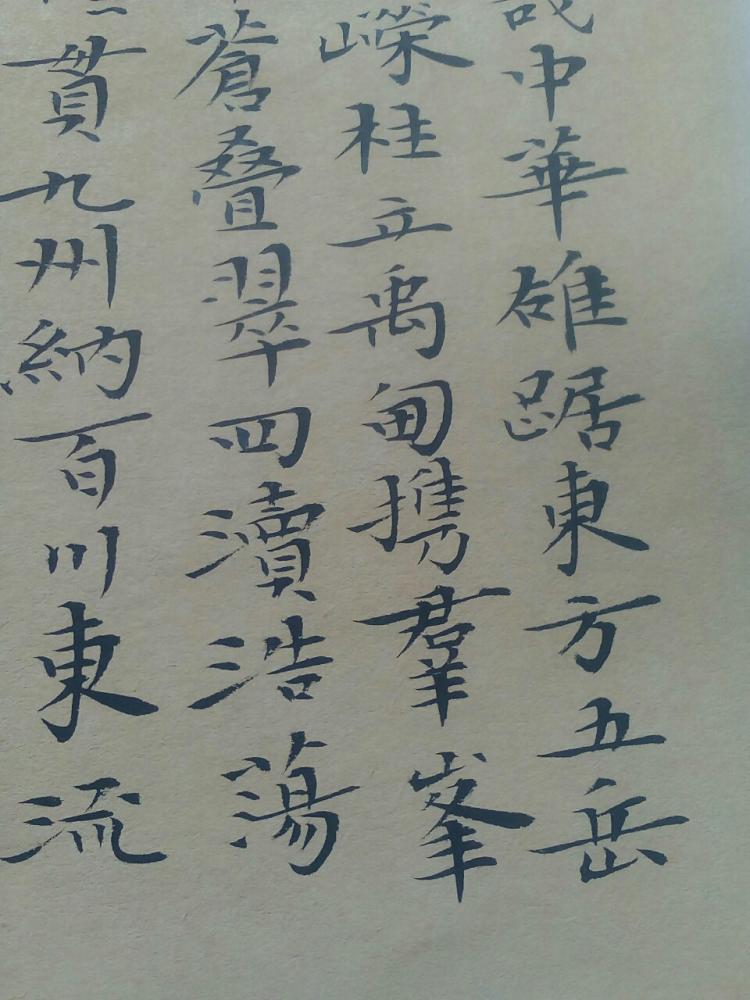 哉中華雄踞東方五岳
嶸柱立禹甸攜羣峯
蒼叠翠四瀆浩蕩
貫九州納百川東流